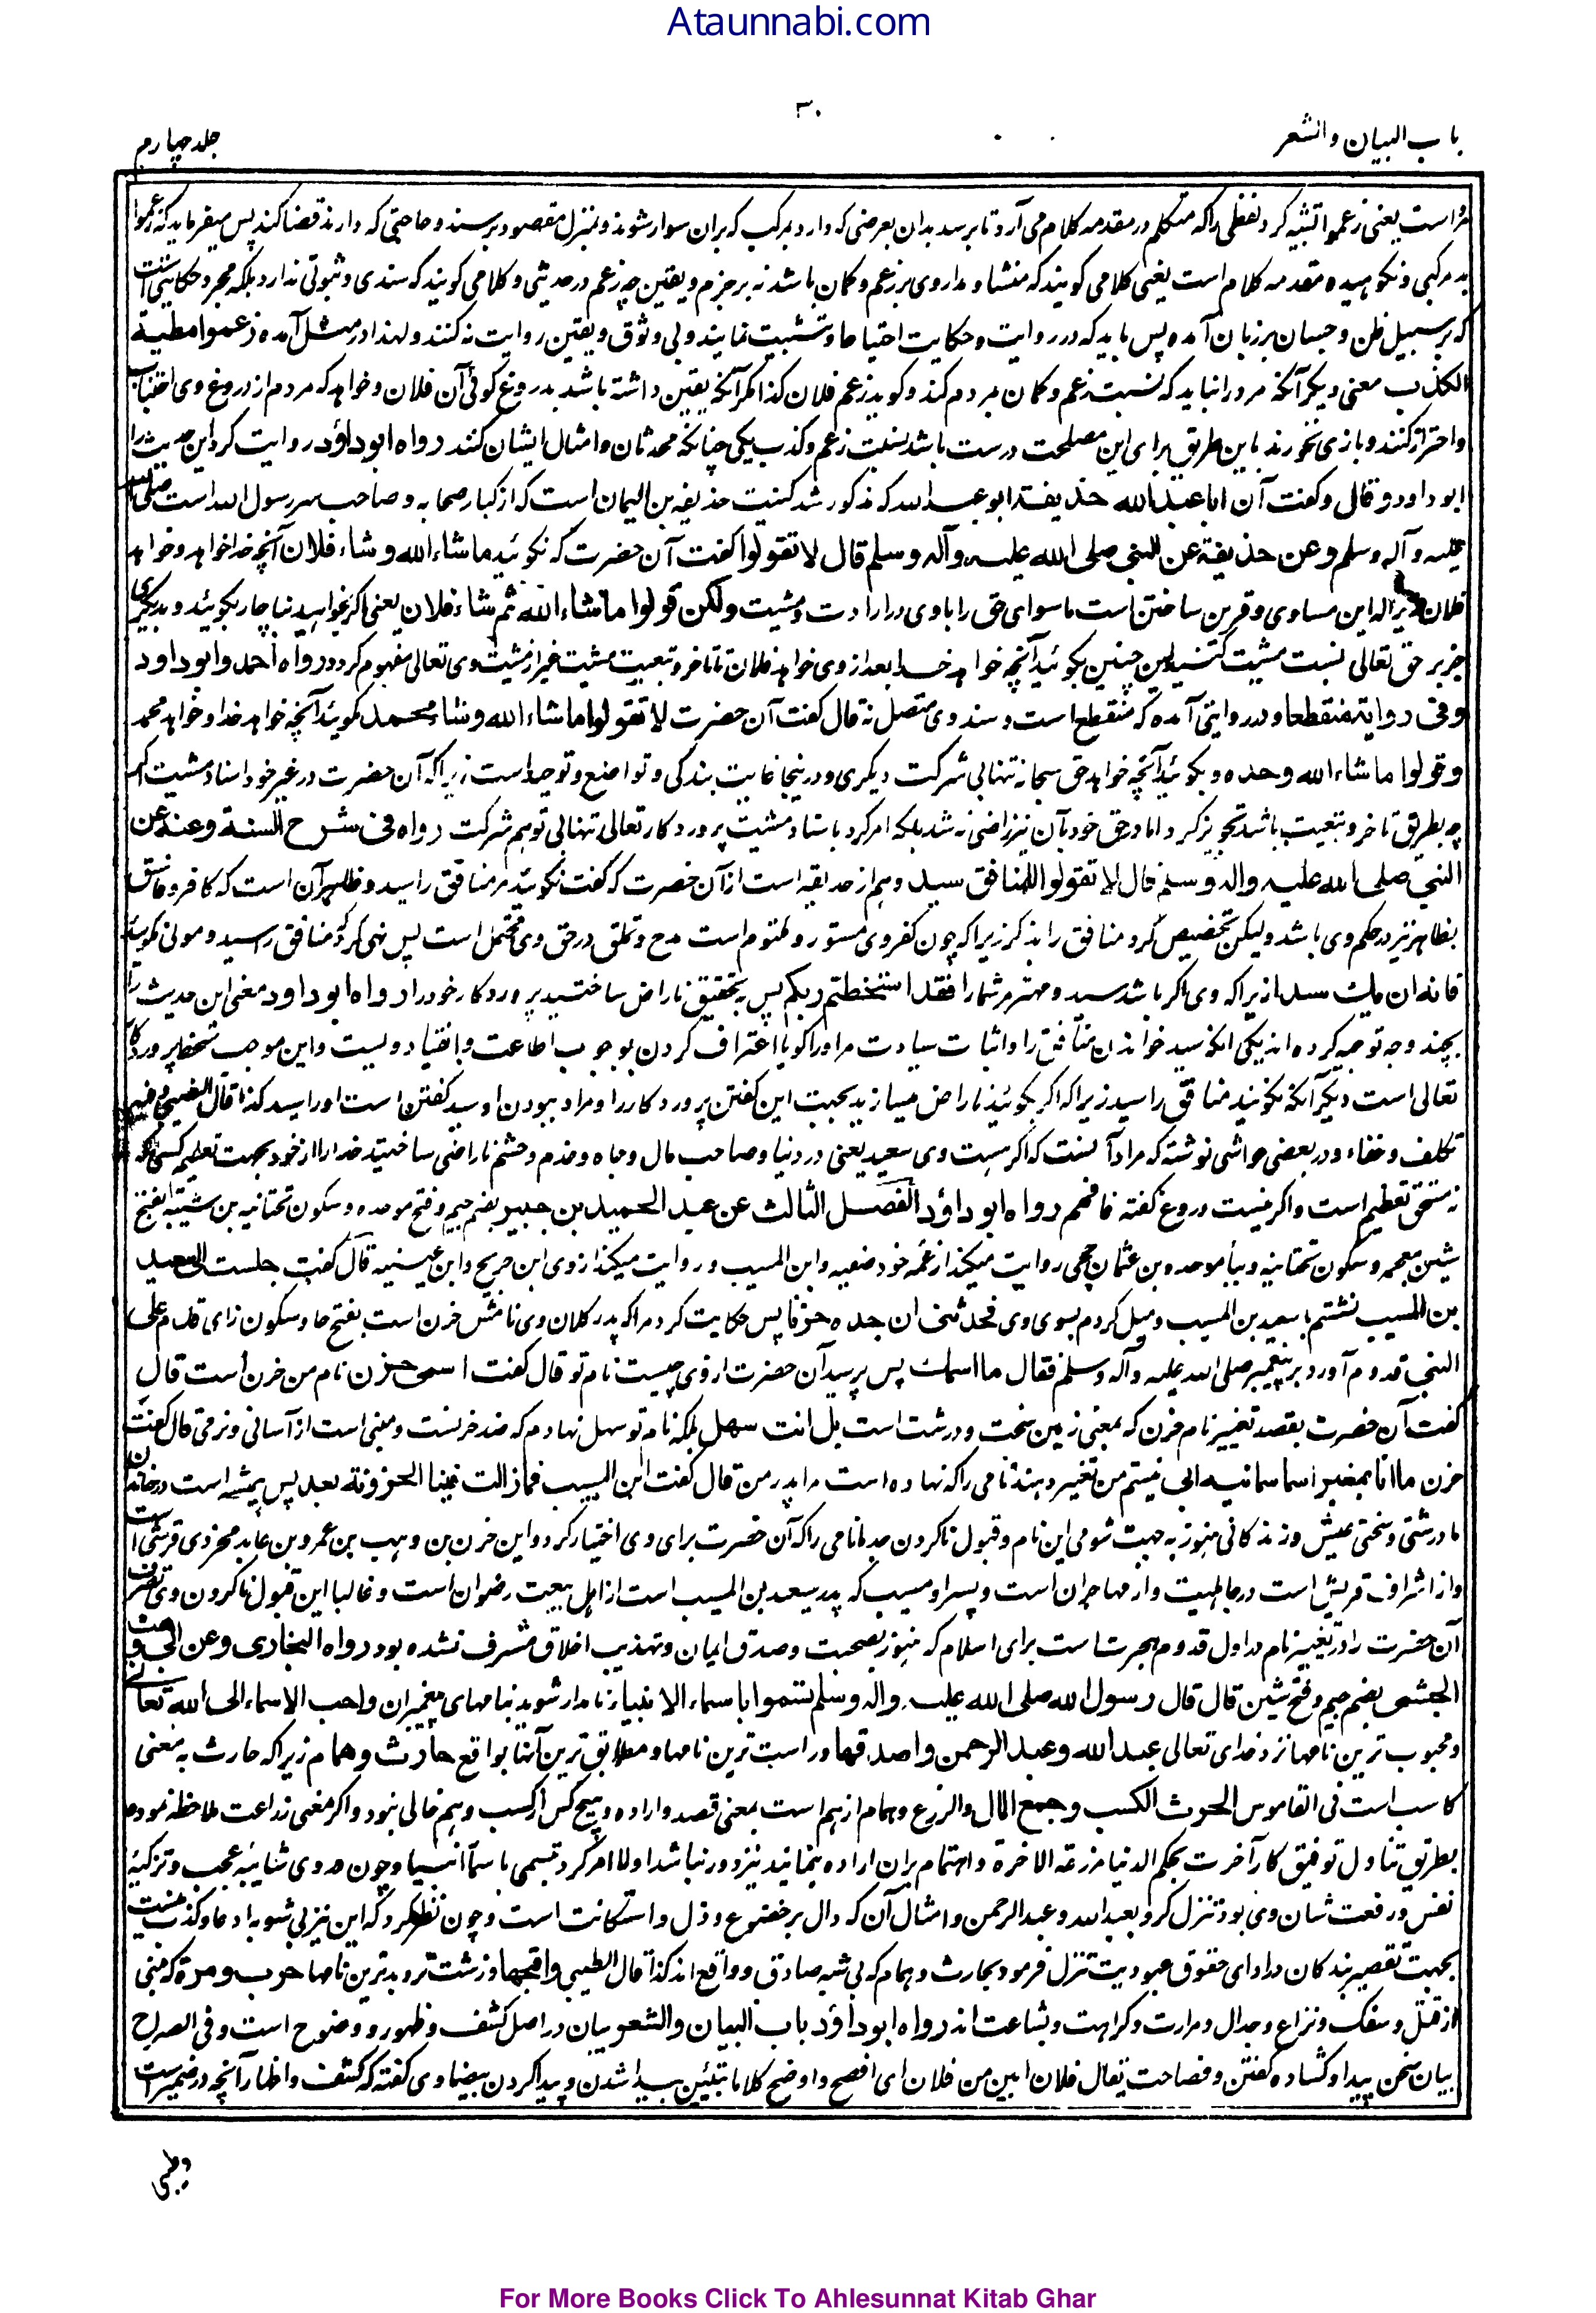 Ataunnabi.com
۳۰
باب البیان والشعر
جلد چهارم
مراست یعنی زعموا تشبیه کرد لفظی را که متکلم در مقدمه کلام می آرد تا برسد بدان بعرضی که دارد بمرکب که بران سوار شوند و بمنزل مقصود برسند و حاجتی که دارند قضا کنند پس میفرماید که زعموا
بد مرکبی و نکوهیده مقدمه کلام است یعنی کلامی گویند که منشا و مدار وی بر زعم و گمان باشد نه بر جزم و یقین چه زعم در حدیثی و کلامی گویند که سندی و ثبوتی ندارد بلکه مجرد حکایتی است
که بر سبیل ظن و حسبان بر زبان آمده پس باید که در روایت و حکایت احتیاط و تثبیت نمایند و بی وثوق و یقین روایت نه کنند و لهذا در مثل آمده زعموا مطیة
الکذب معنی دیگر آنکه مرد را نباید که نسبت زعم و گمان بمردم کند و گوید زعم فلان کذا مگر آنکه یقین داشته باشد بدروغ گوئی آن فلان و خواهد که مردم از دروغ وی اجتناب
و احتراز کنند و بازی نخورند باین طریق برای این مصلحت درست باشد نسبت زعم و کذب بیکی چنانکه محدثان و امثال ایشان کنند رواه ابو داؤد روایت کرد این حدیث را
ابو داود و قال و گفت آن اباعبدالله حذیفة ابوعبدالله که مذکور شد کنیت حذیفه بن الیمان است که از کبار صحابه و صاحب سر رسول الله است صلی الله
علیه و آله وسلم وعن حذیفة عن النبی صلی الله علیه وآله وسلم قال لا تقولوا گفت آن حضرت که نگوئید ماشاء الله وشاء فلان آنچه خدا خواهد و خواهد
فلان زیرا که این مساوی و قرین ساختن است ماسوای حق را با وی در ارادت و مشیت ولکن قولوا ماشاء الله ثم شاء فلان یعنی اگر بخواهید ناچار بگوئید و بدیگری
جز بر حق تعالی نسبت مشیت کنید پس چنین بگوئید آنچه خواهد خدا بعد از وی خواهد فلان تا تاخر و تبعیت مشیت غیر از مشیت وی تعالی مفهوم گردد رواه احمد وابوداود
وفی روایة منقطعا و در روایتی آمده که منقطع است و سند وی متصل نه قال گفت آن حضرت لا تقولوا ماشاء الله وشاء محمد نگوئید آنچه خواهد خدا و خواهد محمد
وقولوا ماشاء الله وحده و بگوئید آنچه خواهد حق سبحانه تنها بی شرکت دیگری و درینجا غایت بندگی و تواضع و توحید است زیرا که آن حضرت در غیر خود اسناد مشیت اگر
چه بطریق تاخر و تبعیت باشد تجویز کرد اما در حق خود بآن نیز راضی نه شد بلکه امر کرد باسناد مشیت پروردگار تعالی تنها بی توهم شرکت رواه فی شرح السنة وعنه عن
النبی صلی الله علیه واله وسلم قال لا تقولوا للمنافق سید وهم از حذیفه است از آن حضرت که گفت نگوئید مر منافق را سید و ظاهر آن است که کافر و فاسق
بظاهر نیز در حکم وی باشد و لیکن تخصیص کرد منافق را بذکر زیرا که چون کفر وی مستور و مکتوم است مدح و تملق در حق وی محتمل است پس نهی کرد که منافق را سید و مولی نگوئید
فانه ان یك سیدا زیرا که وی اگر باشد سید و مهتر مر شما را فقد اسخطتم ربکم پس بتحقیق ناراض ساختید پروردگار خود را رواه ابو داود معنی این حدیث را
بچند وجه توجیه کرده اند یکی آنکه سید خواندن منافق را و اثبات سیادت مر او را گویا اعتراف کردن بوجوب اطاعت و انقیاد ویست و این موجب سخط پروردگار
تعالی است دیگر آنکه نگوئید منافق را سید زیرا که اگر بگوئید ناراض میسازید بجهت این گفتن پروردگار را و مراد ببودن او سید گفتن است او را سید کذا قال الطیبی وفیه
تکلف و خفاء و در بعضی حواشی نوشته که مراد آنست که اگر هست وی سعید یعنی در دنیا و صاحب مال و جاه و خدم و حشم ناراضی ساختید خدا را از خود بجهت تعظیم کسی که
نه مستحق تعظیم است و اگر نیست دروغ گفته فافهم رواه ابو داؤد الفصل الثالث عن عبد الحمید بن جبیر بضم جیم و فتح موحده و سکون تحتانیه بن شیبة بفتح
شین معجمه و سکون تحتانیه و بباء موحده بن عثمان حجبی روایت میکند از عمه خود صفیه و ابن المسیب و روایت میکند از وی ابن جریج و ابن عیینه قال گفت جلست الی سعید
بن المسیب نشستم با سعید بن المسیب و میل کردم بسوی وی فحدثنی ان جده حزنا پس حکایت کرد مرا که پدر کلان وی نامش حزن است بفتح حا و سکون زای قدم علی
النبی قدوم آورد بر پیغمبر صلی الله علیه وآله وسلم فقال ما اسمك پس پرسید آن حضرت از وی چیست نام تو قال گفت اسمی حزن نام من حزن است قال
گفت آن حضرت بقصد تغییر نام حزن که بمعنی زمین سخت و درشت است بل انت سهل بلکه نام تو سهل نهادم که ضد حزنست و مبنی است از آسانی و نرمی قال گفت
حزن ما انا بمغیر اسما سمانیه ابی نیستم من تغییر دهنده نامی را که نهاده است مرا پدر من قال گفت ابن المسیب فما زالت فینا الحزونة بعد پس همیشه است در خاندان
ما درشتی و سختی عیش و زندگانی هنوز به جهت شومی این نام و قبول ناکردن جد ما نامی را که آن حضرت برای وی اختیار کرد و این حزن بن وهب بن عمرو بن عابد مخزومی قرشی است
و از اشراف قریش است در جاهلیت و از مهاجران است و پسر او مسیب که پدر سعید بن المسیب است از اهل بیعت رضوان است و غالبا این قبول ناکردن وی تصرف
آن حضرت را در تغییر نام در اول قدوم بهجرتست برای اسلام که هنوز بصحبت و صدق ایمان و تهذیب اخلاق مشرف نشده بود رواه البخاری وعن ابی وهب
الجشمی بضم جیم و فتح شین قال قال رسول الله صلی الله علیه واله وسلم تسموا باسماء الانبیاء نامدار شوید بنامهای پیغمبران واحب الاسماء الی الله تعالی
و محبوب ترین نامها نزد خدای تعالی عبدالله وعبدالرحمن واصدقها و راست ترین نامها و مطابق ترین آنها بواقع حارث وهمام زیرا که حارث به معنی
کاسب است فی القاموس الحرث الکسب وجمع المال والزرع و همام از هم است بمعنی قصد و اراده و هیچ کس از کسب و هم خالی نبود و اگر معنی زراعت ملاحظه نموده
بطریق تناول توفیق کار آخرت بحکم الدنیا مزرعة الاخرة و اهتمام بران اراده بنمایند نیز دور نباشد اولا امر کرد بتسمی باسماء انبیا و چون در وی شائبه عجب و تزکیه
نفس و رفعت شان وی بود تنزل کرد بعبدالله و عبدالرحمن و امثال آن که دال بر خضوع و ذل و استکانت است و چون نظر کرد که این نیز بی شوب ادعا و کذب نیست
بجهت تقصیر بندگان در ادای حقوق عبودیت تنزل فرمود بحارث و همام که بی شبه صادق و واقع اند کذا قال الطیبی واقبحها و زشت تر و بدترین نامها حرب ومرة که مبنی
از قتل و سفک و نزاع و جدال و مرارت و کراهت و بشاعت اند رواه ابو داؤد باب البیان والشعر بیان در اصل کشف و ظهور و وضوح است و فی الصراح
بیان سخن پیدا و کشاده گفتن و فصاحت یقال فلان ابین من فلان ای افصح و اوضح کلاما تبیین پیدا شدن و پیدا کردن بیضاوی گفته که کشف و اظهار آنچه در ضمیر است
For More Books Click To Ahlesunnat Kitab Ghar